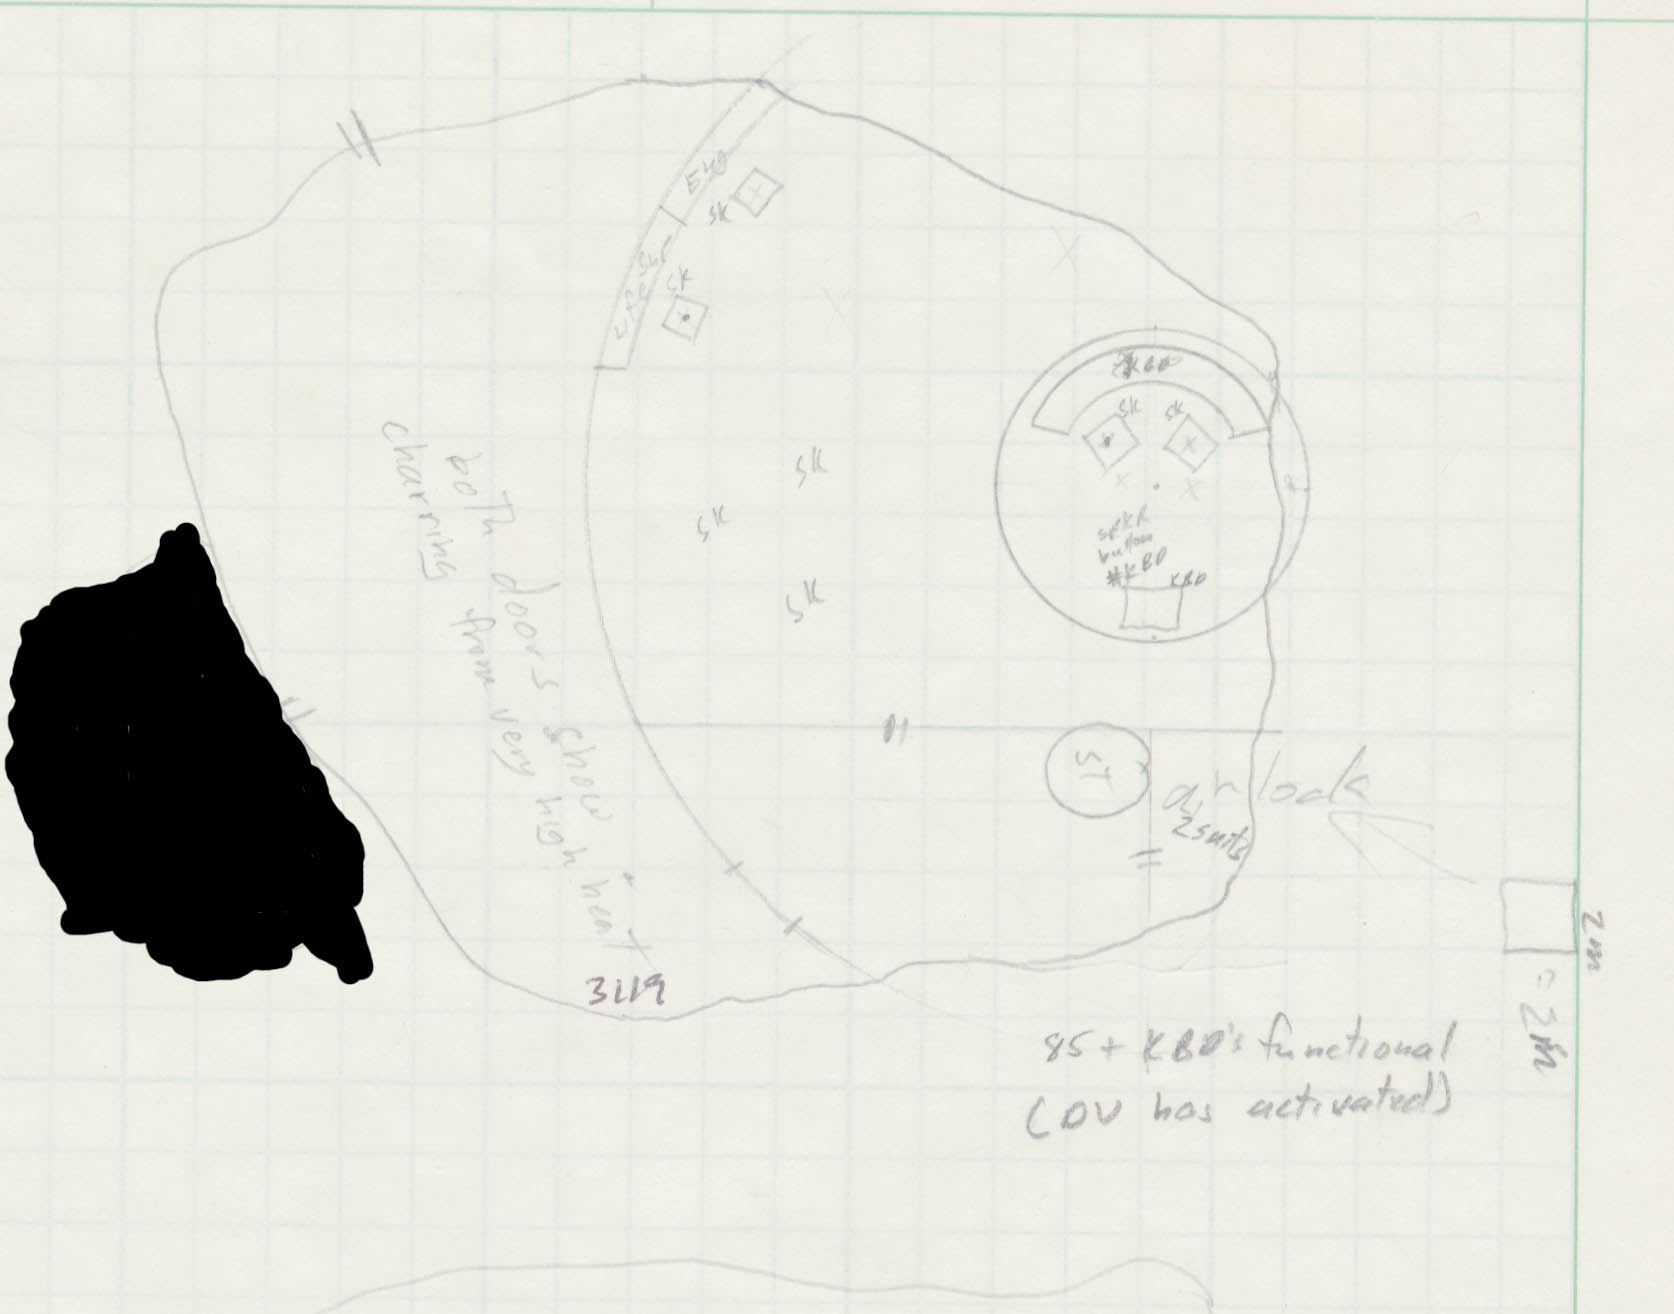 Eng
SK
SK
KBD
SK
SK
SK
SK
SK
SPKR
button
#KBD
KBD
both doors show
charring from very high heat
ST
airlock
2 suits
2m
= 2m
3119
85 + KBD's functional
(DV has activated)